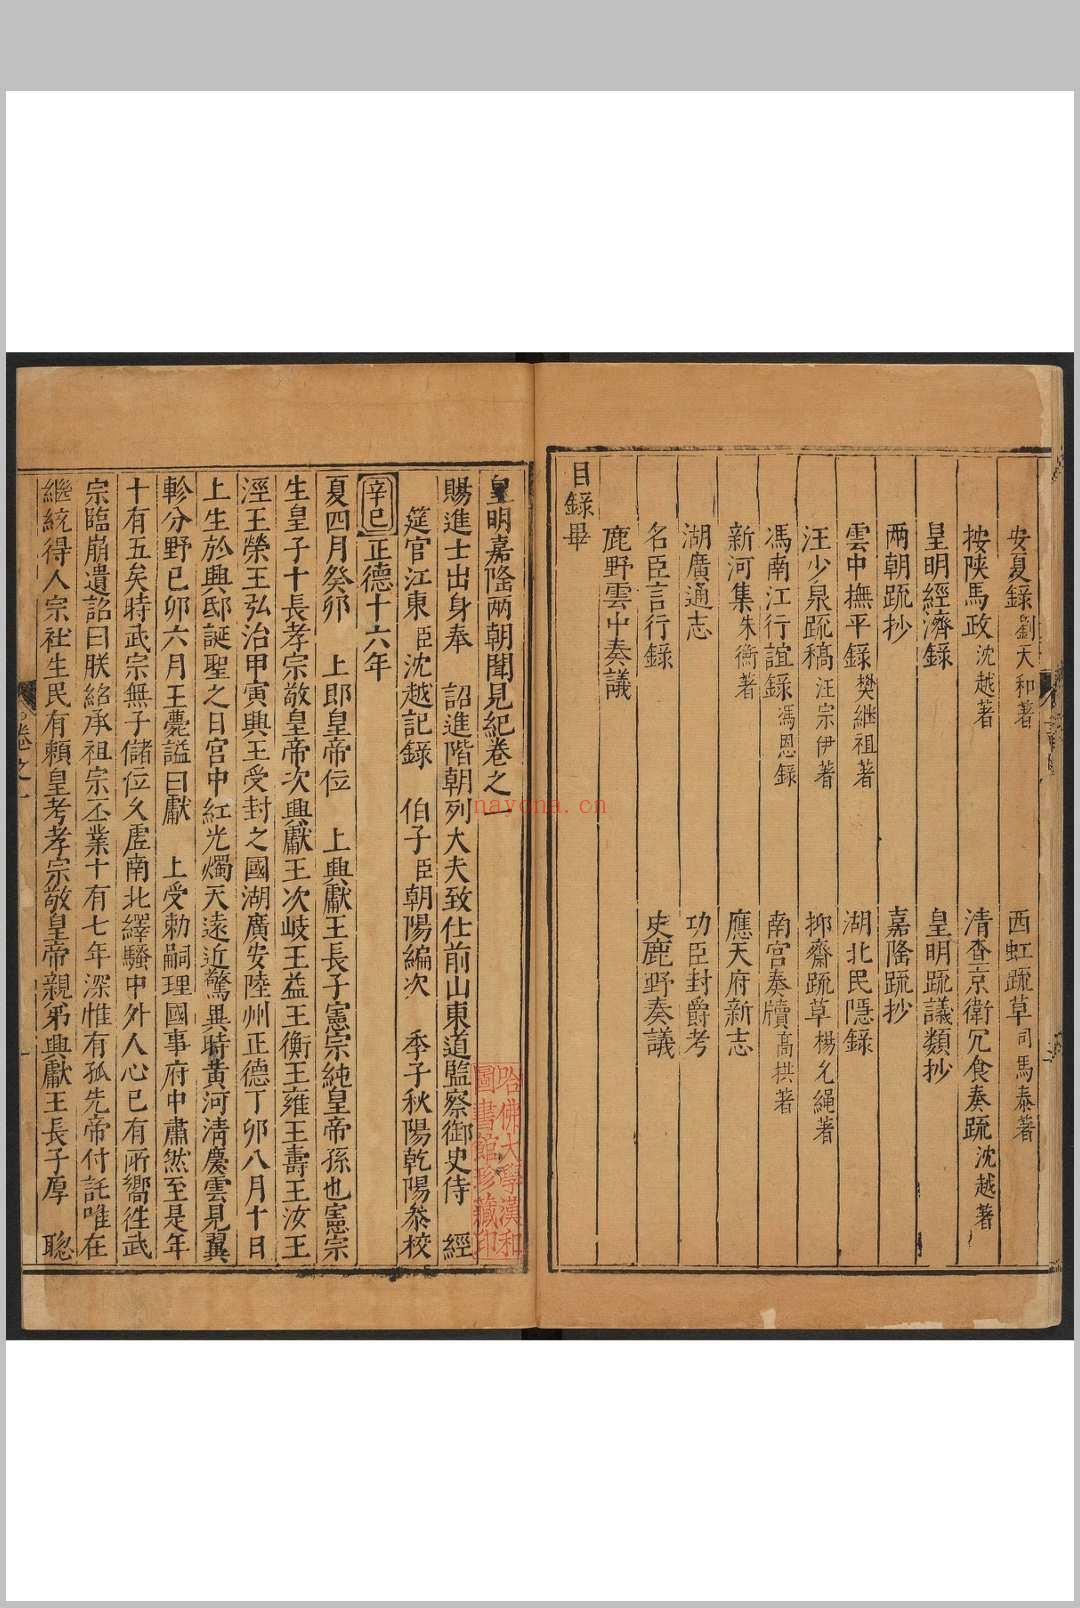 安夏錄劉天和著　西虹疏草司馬泰著
按陝馬政沈越著　清查京衛冗食奏疏沈越著
皇明經濟錄　皇明疏議類抄
兩朝疏抄　嘉隆疏抄
雲中撫平錄樊繼祖著　湖北民隱錄
汪少泉疏稿汪宗伊著　抑齋疏草楊允繩著
馮南江行誼錄馮恩錄　南宮奏牘高拱著
新河集朱衡著　應天府新志
湖廣通志　功臣封爵考
名臣言行錄　史鹿野奏議
鹿野雲中奏議
目錄畢
皇明嘉隆兩朝聞見紀卷之一
賜進士出身奉　詔進階朝列大夫致仕前山東道監察御史侍　經
筵官江東臣沈越記錄　伯子臣朝陽編次　季子秋陽乾陽叅校
辛巳正德十六年
夏四月癸卯　上即皇帝位　上興獻王長子憲宗純皇帝孫也憲宗
生皇子十長孝宗敬皇帝次興獻王次岐王益王衡王雍王壽王汝王
涇王榮王弘治甲寅興王受封之國湖廣安陸州正德丁卯八月十日
上生於興邸誕聖之日宮中紅光燭天遠近驚異時黄河清慶雲見翼
軫分野己卯六月王薨謚曰獻　上受勑嗣理國事府中肅然至是年
十有五矣時武宗無子儲位久虛南北繹騷中外人心已有所嚮徃武
宗臨崩遺詔曰朕紹承祖宗丕業十有七年深惟有孤先帝付託唯在
繼統得人宗社生民有賴皇考孝宗敬皇帝親弟興獻王長子厚　聦
卷之一
哈佛大學漢和
圖書館珍藏印
nayona.cn